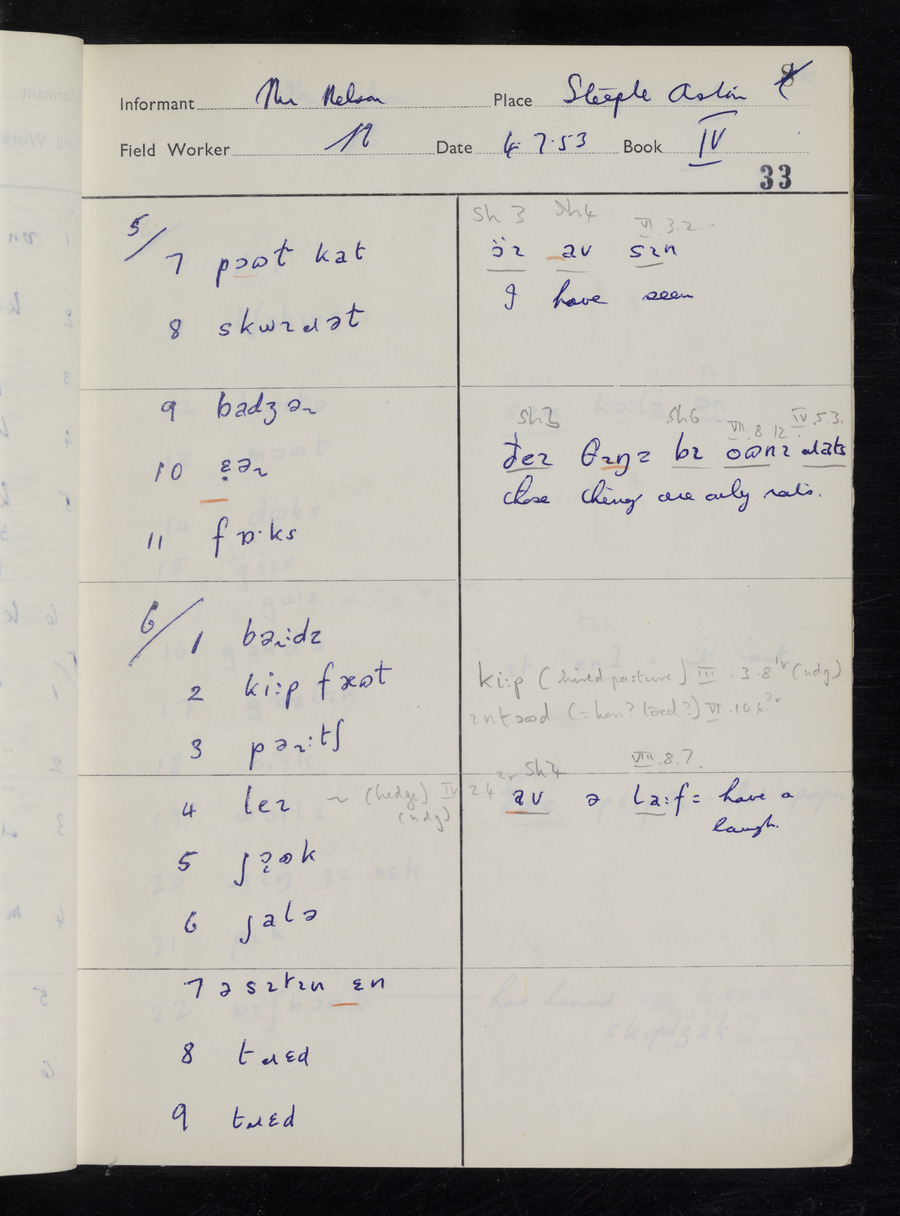 8
Informant Mr Nelson Place Steeple Aston
Field Worker Date 4.7.53 Book IV
33
5/
7 pɔɷt kat
8 skwɪɹət
9 badʒəɹ
10 ɛəɹ
11 fɒ·ks
6/
1 bəɹ:dz
2 ki:p
3 pəɹ:tʃ
4 leɪ ~ (hedge) IV 2 4 (ndg)
5 jɔɷk
6 jalə
7 ə sɪtɪn ɛn
8 tɹɛd
9 tɹɛd
Sh 3 Sh 4 VI.3.2.
öɪ av sɪn
I have seen
Sh 3 Sh 6 VII.8.12 IV.5.3.
ðeɪ θɪŋz bɪ oɷnɪ ɹats
those things are only rats.
ki:p (hired pasture) III.3.8 (ndg)
Sh 4 VIII.8.7.
av ə la:f = have a
laugh.